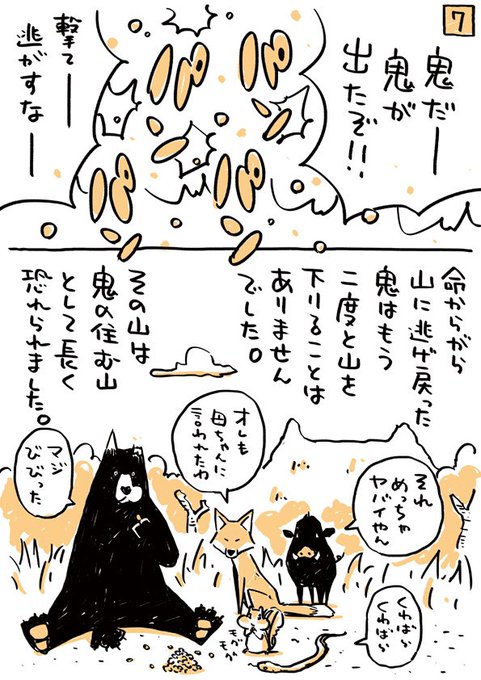 7
鬼だー
鬼が
出たぞ!!
撃てー
逃がすなー
ドド
ドド
命からがら
山に逃げ戻った
鬼はもう
二度と山を
下りることは
ありません
でした。
その山は
鬼の住む山
として長く
恐れられました。
それ
めっちゃ
ヤバイやん
オレも
母ちゃんに
言われたわ
マジ
びびった
くわばら
くわばら
モグモグ